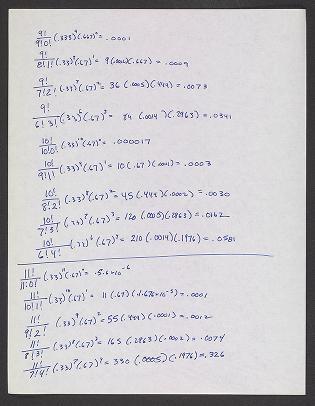 9!/9!0! (.333)⁹(.667)⁰ = .0001
9!/8!1! (.33)⁸(.67)¹ = 9(.0001)(.667) = .0009
9!/7!2! (.33)⁷(.67)² = 36 (.0005)(.449) = .0073
9!/6!3! (.33)⁶(.67)³ = 84 (.0014)(.2963) = .0341
10!/10!0! (.33)¹⁰(.67)⁰ = .000017
10!/9!1! (.33)⁹(.67)¹ = 10(.67)(.0001) = .0003
10!/8!2! (.33)⁸(.67)² = 45(.449)(.0002) = .0030
10!/7!3! (.33)⁷(.67)³ = 120 (.0005)(.2963) = .0162
10!/6!4! (.33)⁶(.67)⁴ = 210 (.0014)(.1976) = .0581
11!/11!0! (.33)¹¹(.67)⁰ = 5.6×10⁻⁶
11!/10!1! (.33)¹⁰(.67)¹ = 11(.67)(1.676×10⁻⁵) = .0001
11!/9!2! (.33)⁹(.67)² = 55(.449)(.0001) = .0012
11!/8!3! (.33)⁸(.67)³ = 165(.2963)(.0002) = .0074
11!/7!4! (.33)⁷(.67)⁴ = 330 (.0005)(.1976) = .326